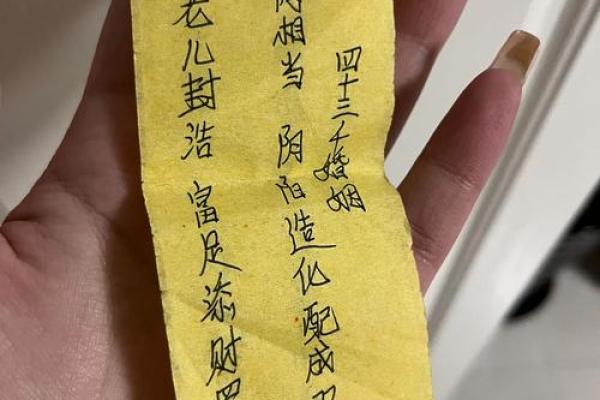 四十三千婚姻
相当 阴阳造化配成
老儿封浩 富足添财